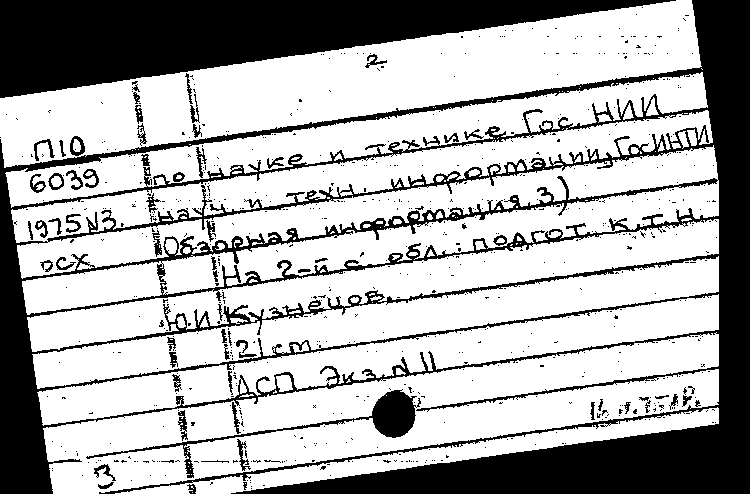 2
П10
6039
1975 N3.
ОСХ
по науке и технике. Гос. НИИ
науч. и техн. информации, ГосИНТИ
Обзорная информация, 3)
На 2-й с. обл.: подгот. к.т.н.
Ю.И. Кузнецов....
21 cm.
ДСП Экз. N 11
3